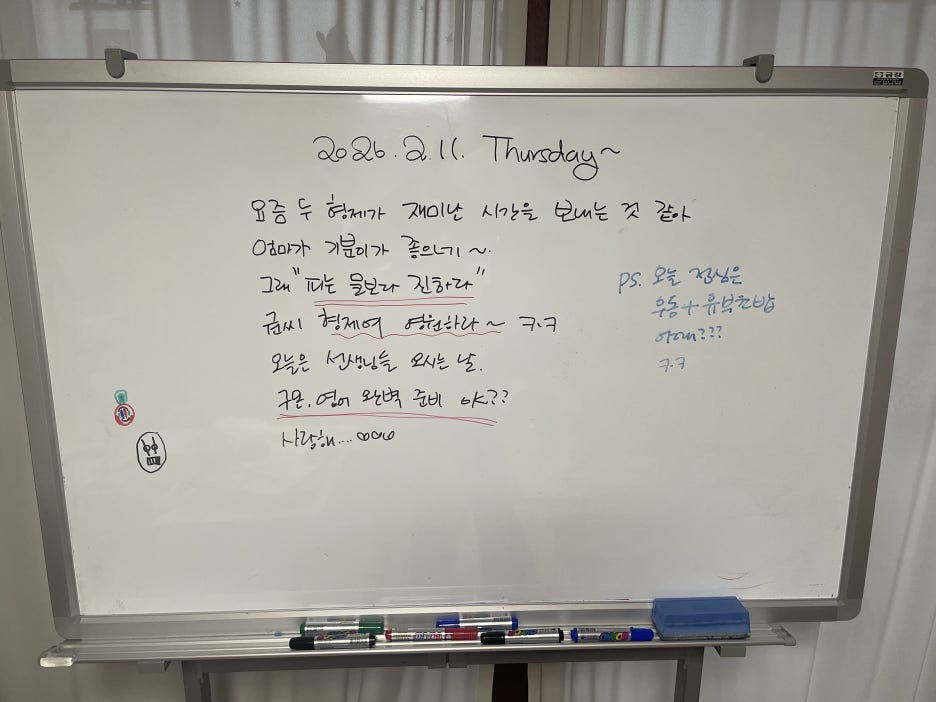 2026.2.11. Thursday~
요즘 두 형제가 재미난 시간을 보내는 것 같아
엄마가 기분이가 좋으네기~.
그래 "피는 물보다 진하다"
금씨 형제여 영원하라~ ㅋ.ㅋ
오늘은 선생님들 오시는 날.
구몬.영어 완벽 준비 야??
사랑해....♡♡♡
ps. 오늘 점심은
우동+유부초밥
어때???
ㅋ.ㅋ